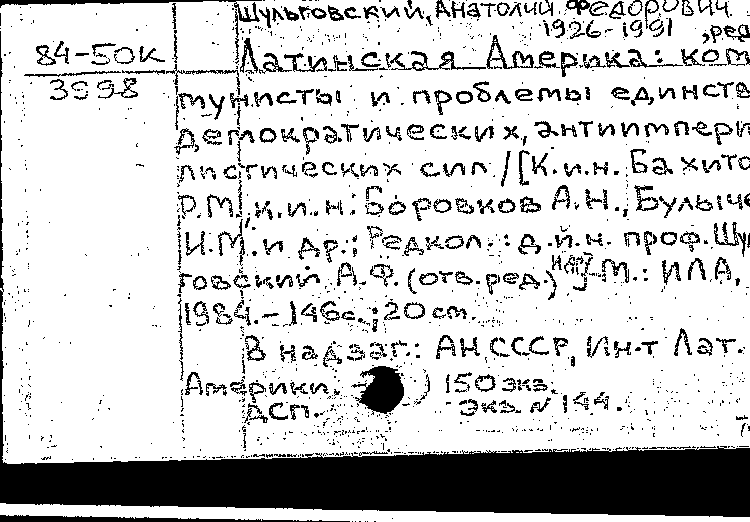 Шульговский, Анатолий Федорович
1926-1991, ред
84-50к
Латинская Америка: ком
3998
мунисты и проблемы единств
демократических, антиимпери
листических сил / [К.и.н. Бахито
Р.М., к.и.н. Боровков А.Н., Булыче
И.М. и др.; Редкол.: д.и.н. проф. Шул
говский А.Ф. (отв. ред.) и др.]-М.: ИЛА,
1984.-146с.; 20 см.
В надзаг.: АН СССР, Ин-т Лат.
Америки. - ) 150 экз.
ДСП. Экз. N 144.